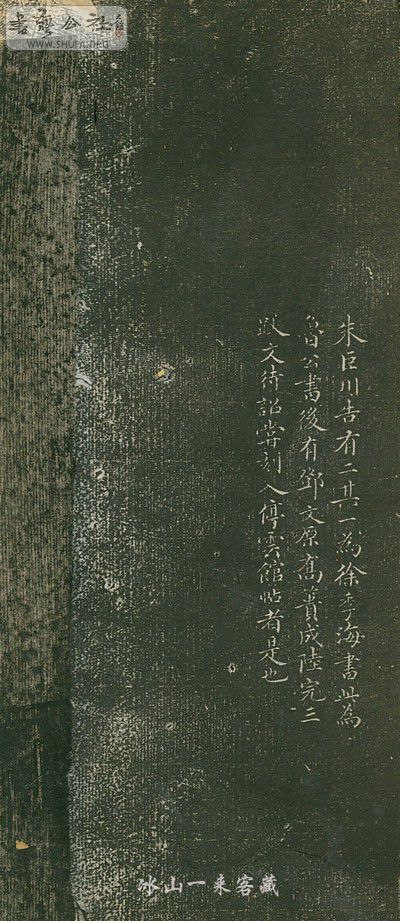 書法公社
WWW.SHUFA.ORG
朱巨川告有二其一為徐季海書此為
魯公書後有鄧文原喬簣成陸完三
跋文待詔嘗刻入停雲館帖者是也
冰山一來客藏